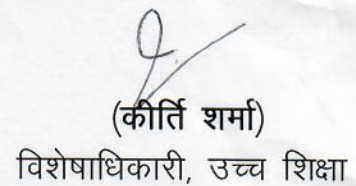 (कीर्ति शर्मा)
विशेषाधिकारी, उच्च शिक्षा